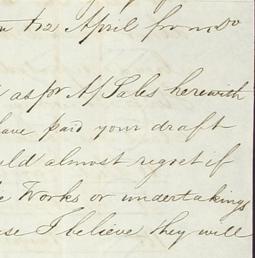 12 April from Do
as pr A/Sales herewith
have paid your draft
uld almost regret if
Works or undertakings
use I believe they will